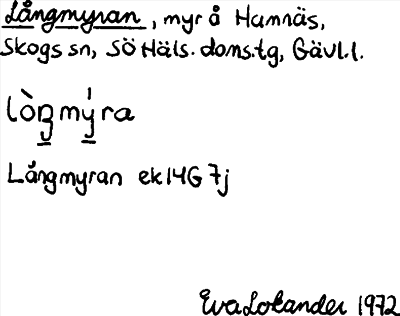 Långmyran, myr å Hamnäs,
Skogs sn, Sö Häls. doms.tg, Gävl.l.
lòŋmýra
Långmyran ek 14G 7j
Eva Lokander 1972